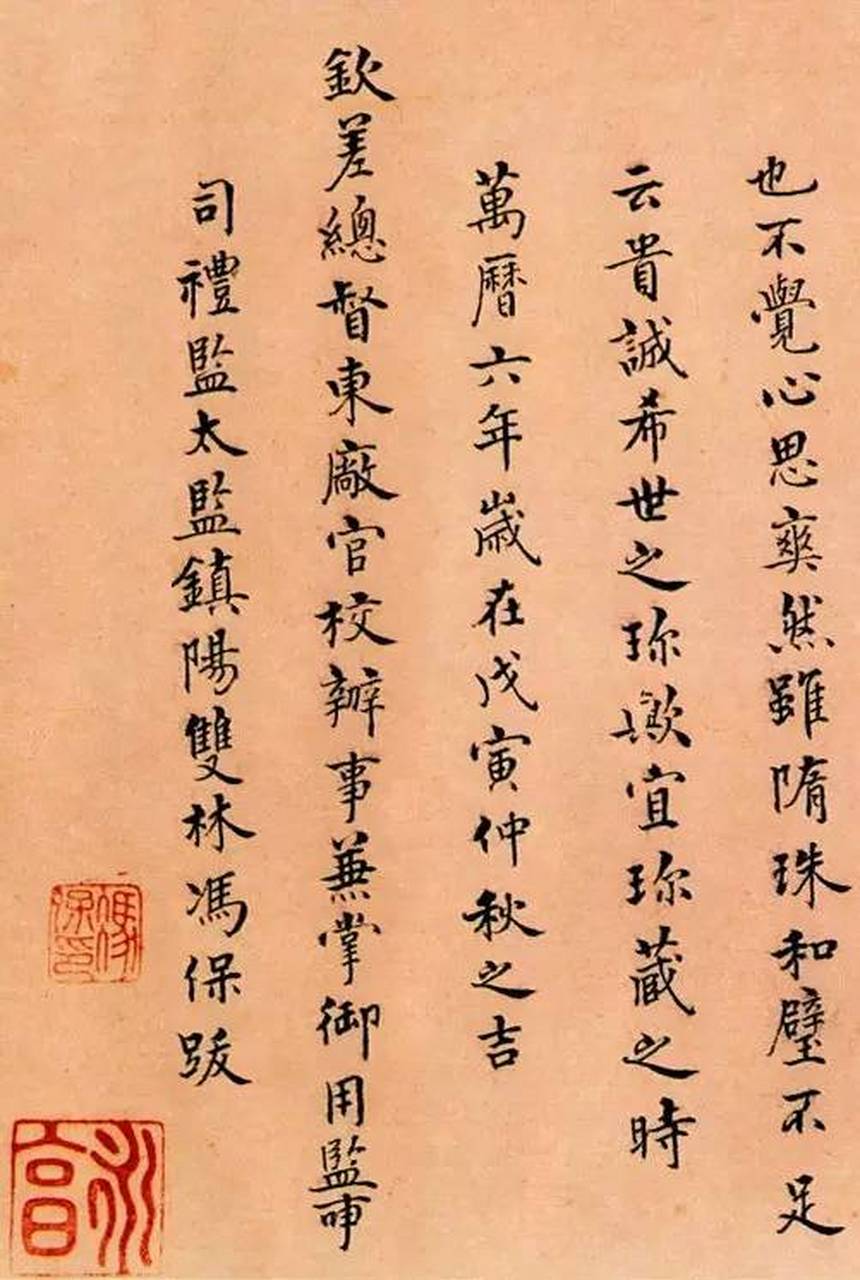 也不覺心思爽然雖隋珠和璧不足
云貴誠希世之珎歟宜珎藏之時
萬曆六年歲在戊寅仲秋之吉
欽差總督東廠官校辦事兼掌御用監事
司禮監太監鎮陽雙林馮保跋
馮保印